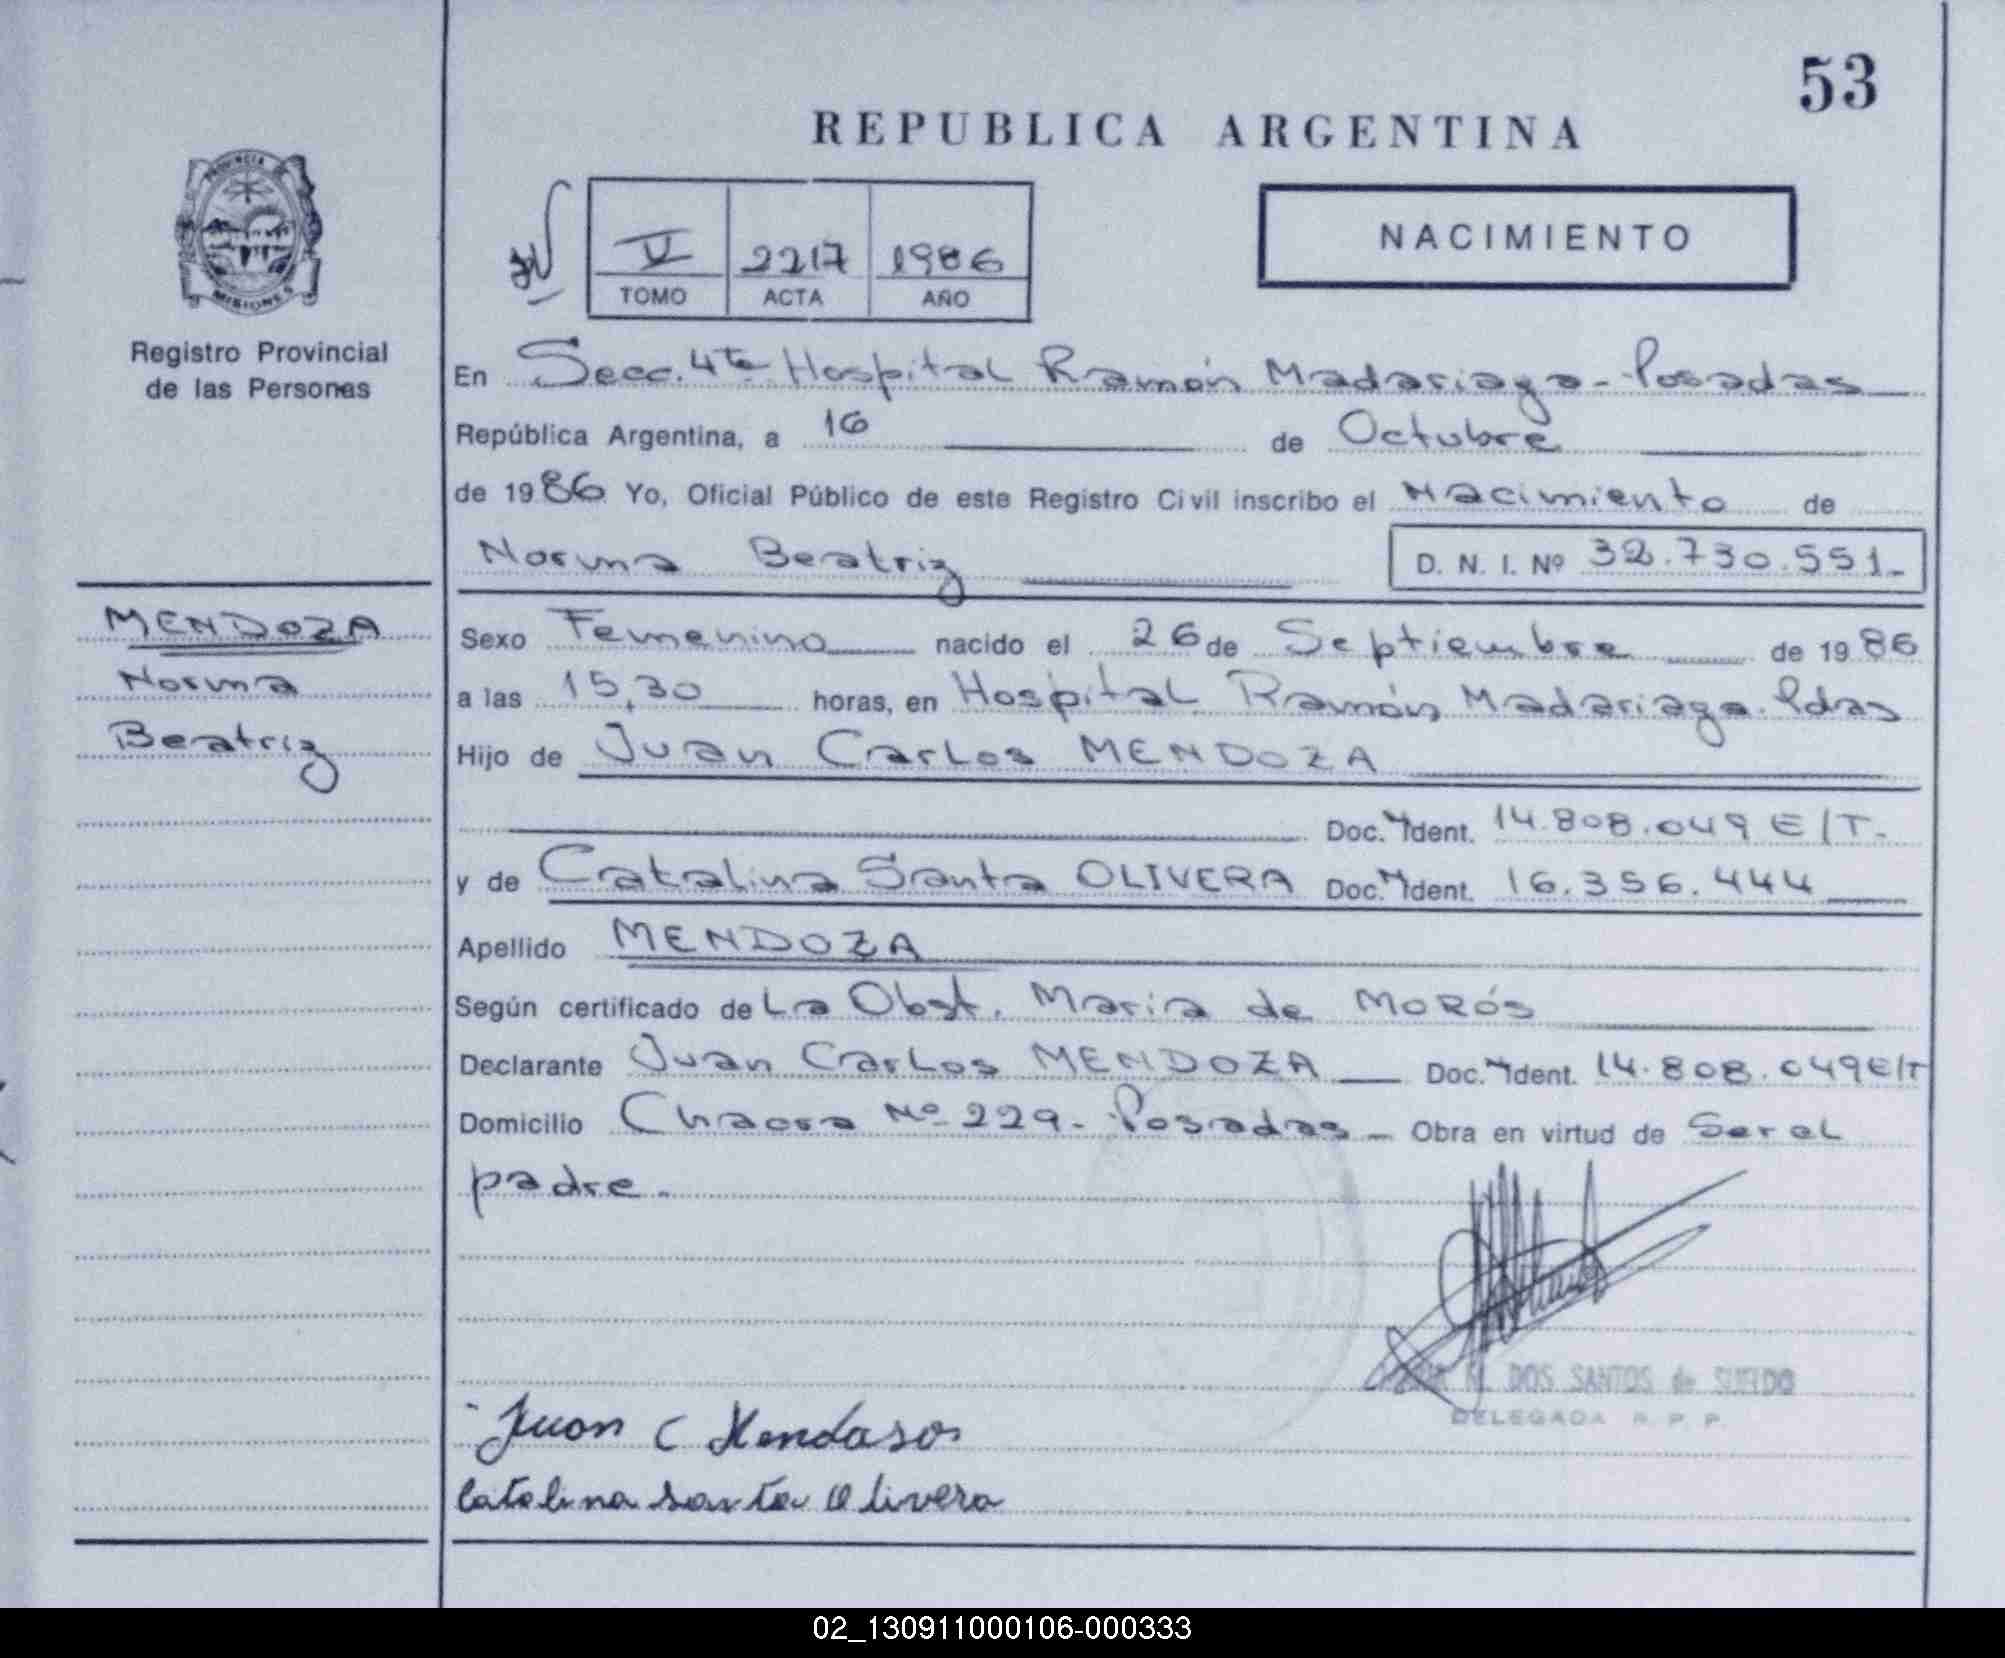 53
REPUBLICA ARGENTINA
PROVINCIA DE
MISIONES
Registro Provincial
de las Personas
V 2217 1986
TOMO ACTA AÑO
NACIMIENTO
En Secc. 4ta Hospital Ramón Madariaga - Posadas
República Argentina, a 16 de Octubre
de 1986 Yo, Oficial Público de este Registro Civil inscribo el Nacimiento de
Norma Beatriz D. N. I. Nº 32.730.551.-
MENDOZA
Norma
Beatriz
Sexo Femenino nacido el 26 de Septiembre de 1986
a las 15,30 horas, en Hospital Ramón Madariaga. Pdas
Hijo de Juan Carlos MENDOZA
Doc. Ident. 14.808.049 E/T.
y de Catalina Santa OLIVERA Doc. Ident. 16.356.444
Apellido MENDOZA
Según certificado de La Obst. Maria de MORÓS
Declarante Juan Carlos MENDOZA Doc. Ident. 14.808.049 E/T
Domicilio Chacra Nº 229 - Posadas - Obra en virtud de Ser el
padre.
DOS SANTOS de
DELEGADA R. P. P.
Juan C Mendoso
Catalina Santa Olivera
02_130911000106-000333